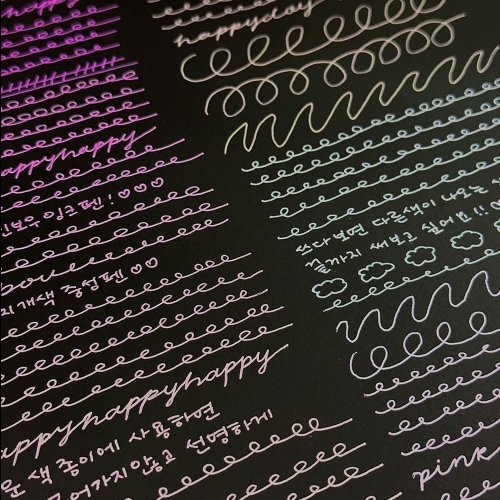 happy
appyhappy
인보우 잉크 펜 ! ♡♡♡
지개색 중성펜 ♡♡
appyhappyhappy
운 색 종이에 사용하면
어가지않고 선명하게
happyday
쓰다보면 다른색이 나오는
끝까지 써보고 싶어요!! ♡
pink